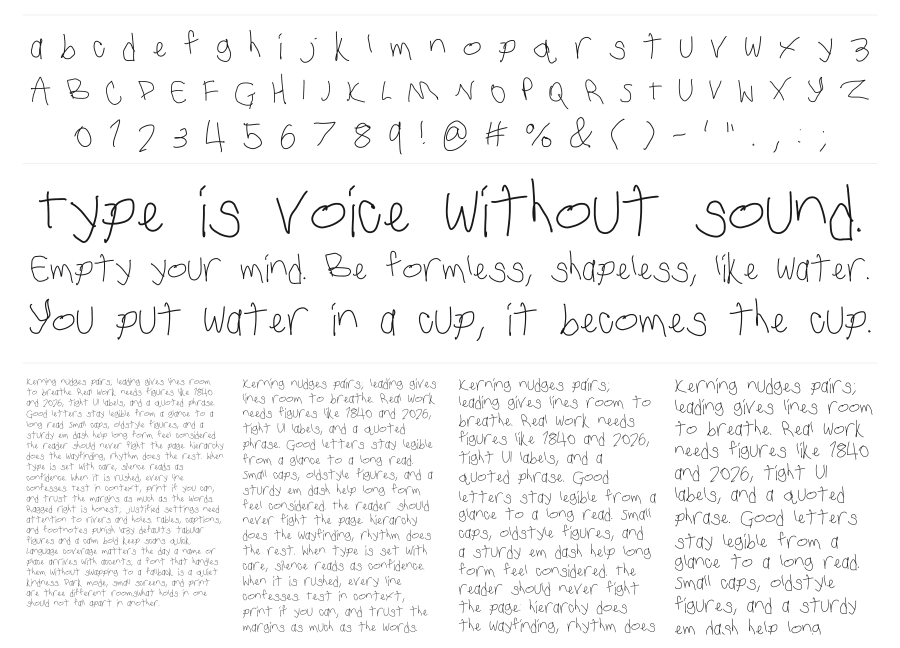 a b c d e f g h i j k l m n o p q r s t u v w x y z
A B C D E F G H I J K L M N O P Q R S T U V W X Y Z
0 1 2 3 4 5 6 7 8 9 ! @ # % & ( ) - ' " . , : ;
type is voice without sound.
Empty your mind. Be formless, shapeless, like water.
You put water in a cup, it becomes the cup.
Kerning nudges pairs; leading gives lines room
to breathe. Real work needs figures like 1840
and 2026, tight UI labels, and a quoted phrase.
Good letters stay legible from a glance to a
long read. Small caps, oldstyle figures, and a
sturdy em dash help long form feel considered.
the reader should never fight the page hierarchy
does the wayfinding, rhythm does the rest. When
type is set with care, silence reads as
confidence. When it is rushed, every line
confesses. Test in context, print if you can,
and trust the margins as much as the words.
Ragged right is honest, justified settings need
attention to rivers and holes. Tables, captions,
and footnotes punish lazy defaults. Tabular
figures and a calm bold keep scans quick.
Language coverage matters the day a name or
place arrives with accents, a font that handles
them without swapping to a fallback is a quiet
kindness. Dark mode, small screens, and print
are three different rooms, what holds in one
should not fall apart in another.
Kerning nudges pairs, leading gives
lines room to breathe. Real work
needs figures like 1840 and 2026,
tight UI labels, and a quoted
phrase. Good letters stay legible
from a glance to a long read.
Small caps, oldstyle figures, and a
sturdy em dash help long form
feel considered. the reader should
never fight the page hierarchy
does the wayfinding, rhythm does
the rest. When type is set with
care, silence reads as confidence.
When it is rushed, every line
confesses. Test in context,
print if you can, and trust the
margins as much as the words.
Kerning nudges pairs;
leading gives lines room to
breathe. Real work needs
figures like 1840 and 2026,
tight UI labels, and a
quoted phrase. Good
letters stay legible from a
glance to a long read. Small
caps, oldstyle figures, and
a sturdy em dash help long
form feel considered. the
reader should never fight
the page hierarchy does
the wayfinding, rhythm does
Kerning nudges pairs;
leading gives lines room
to breathe. Real work
needs figures like 1840
and 2026, tight UI
labels, and a quoted
phrase. Good letters
stay legible from a
glance to a long read.
Small caps, oldstyle
figures, and a sturdy
em dash help long